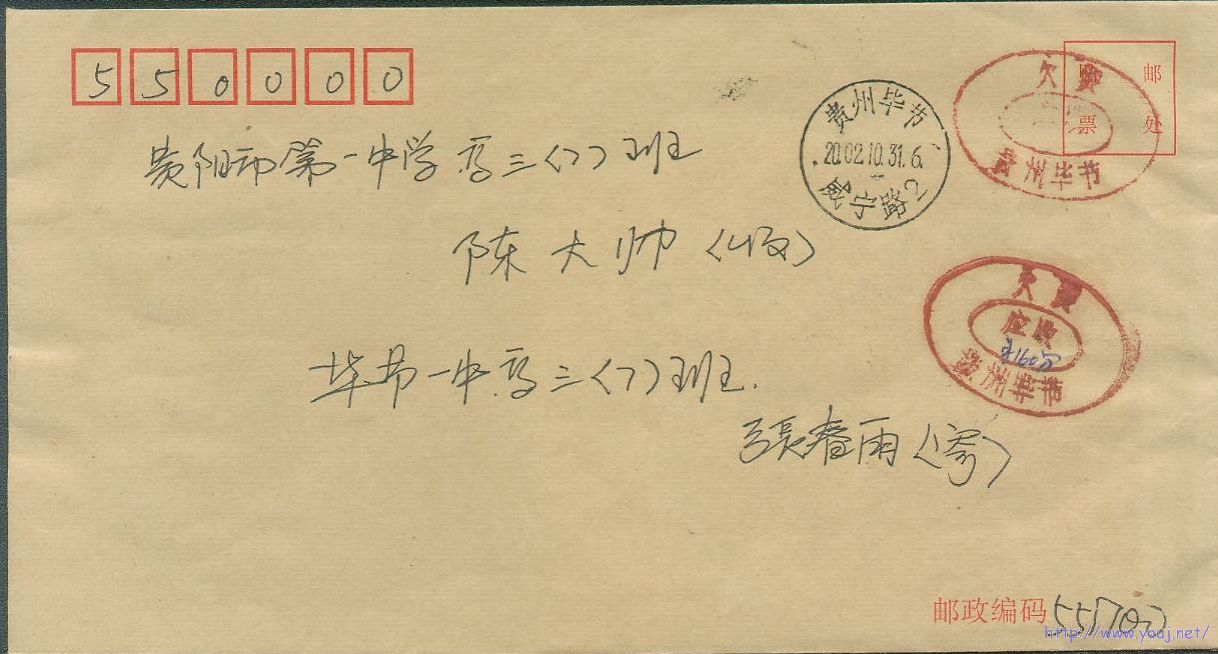 550000
贵阳市第一中学高三(7)班
陈大帅(收)
毕节一中高三(7)班.
張春雨(寄)
贵州毕节
2002.10.31.6
威宁路
欠费
贵州毕节
邮
票 处
欠费
应收
160分
贵州毕节
邮政编码 551700
http://www.youj.net/